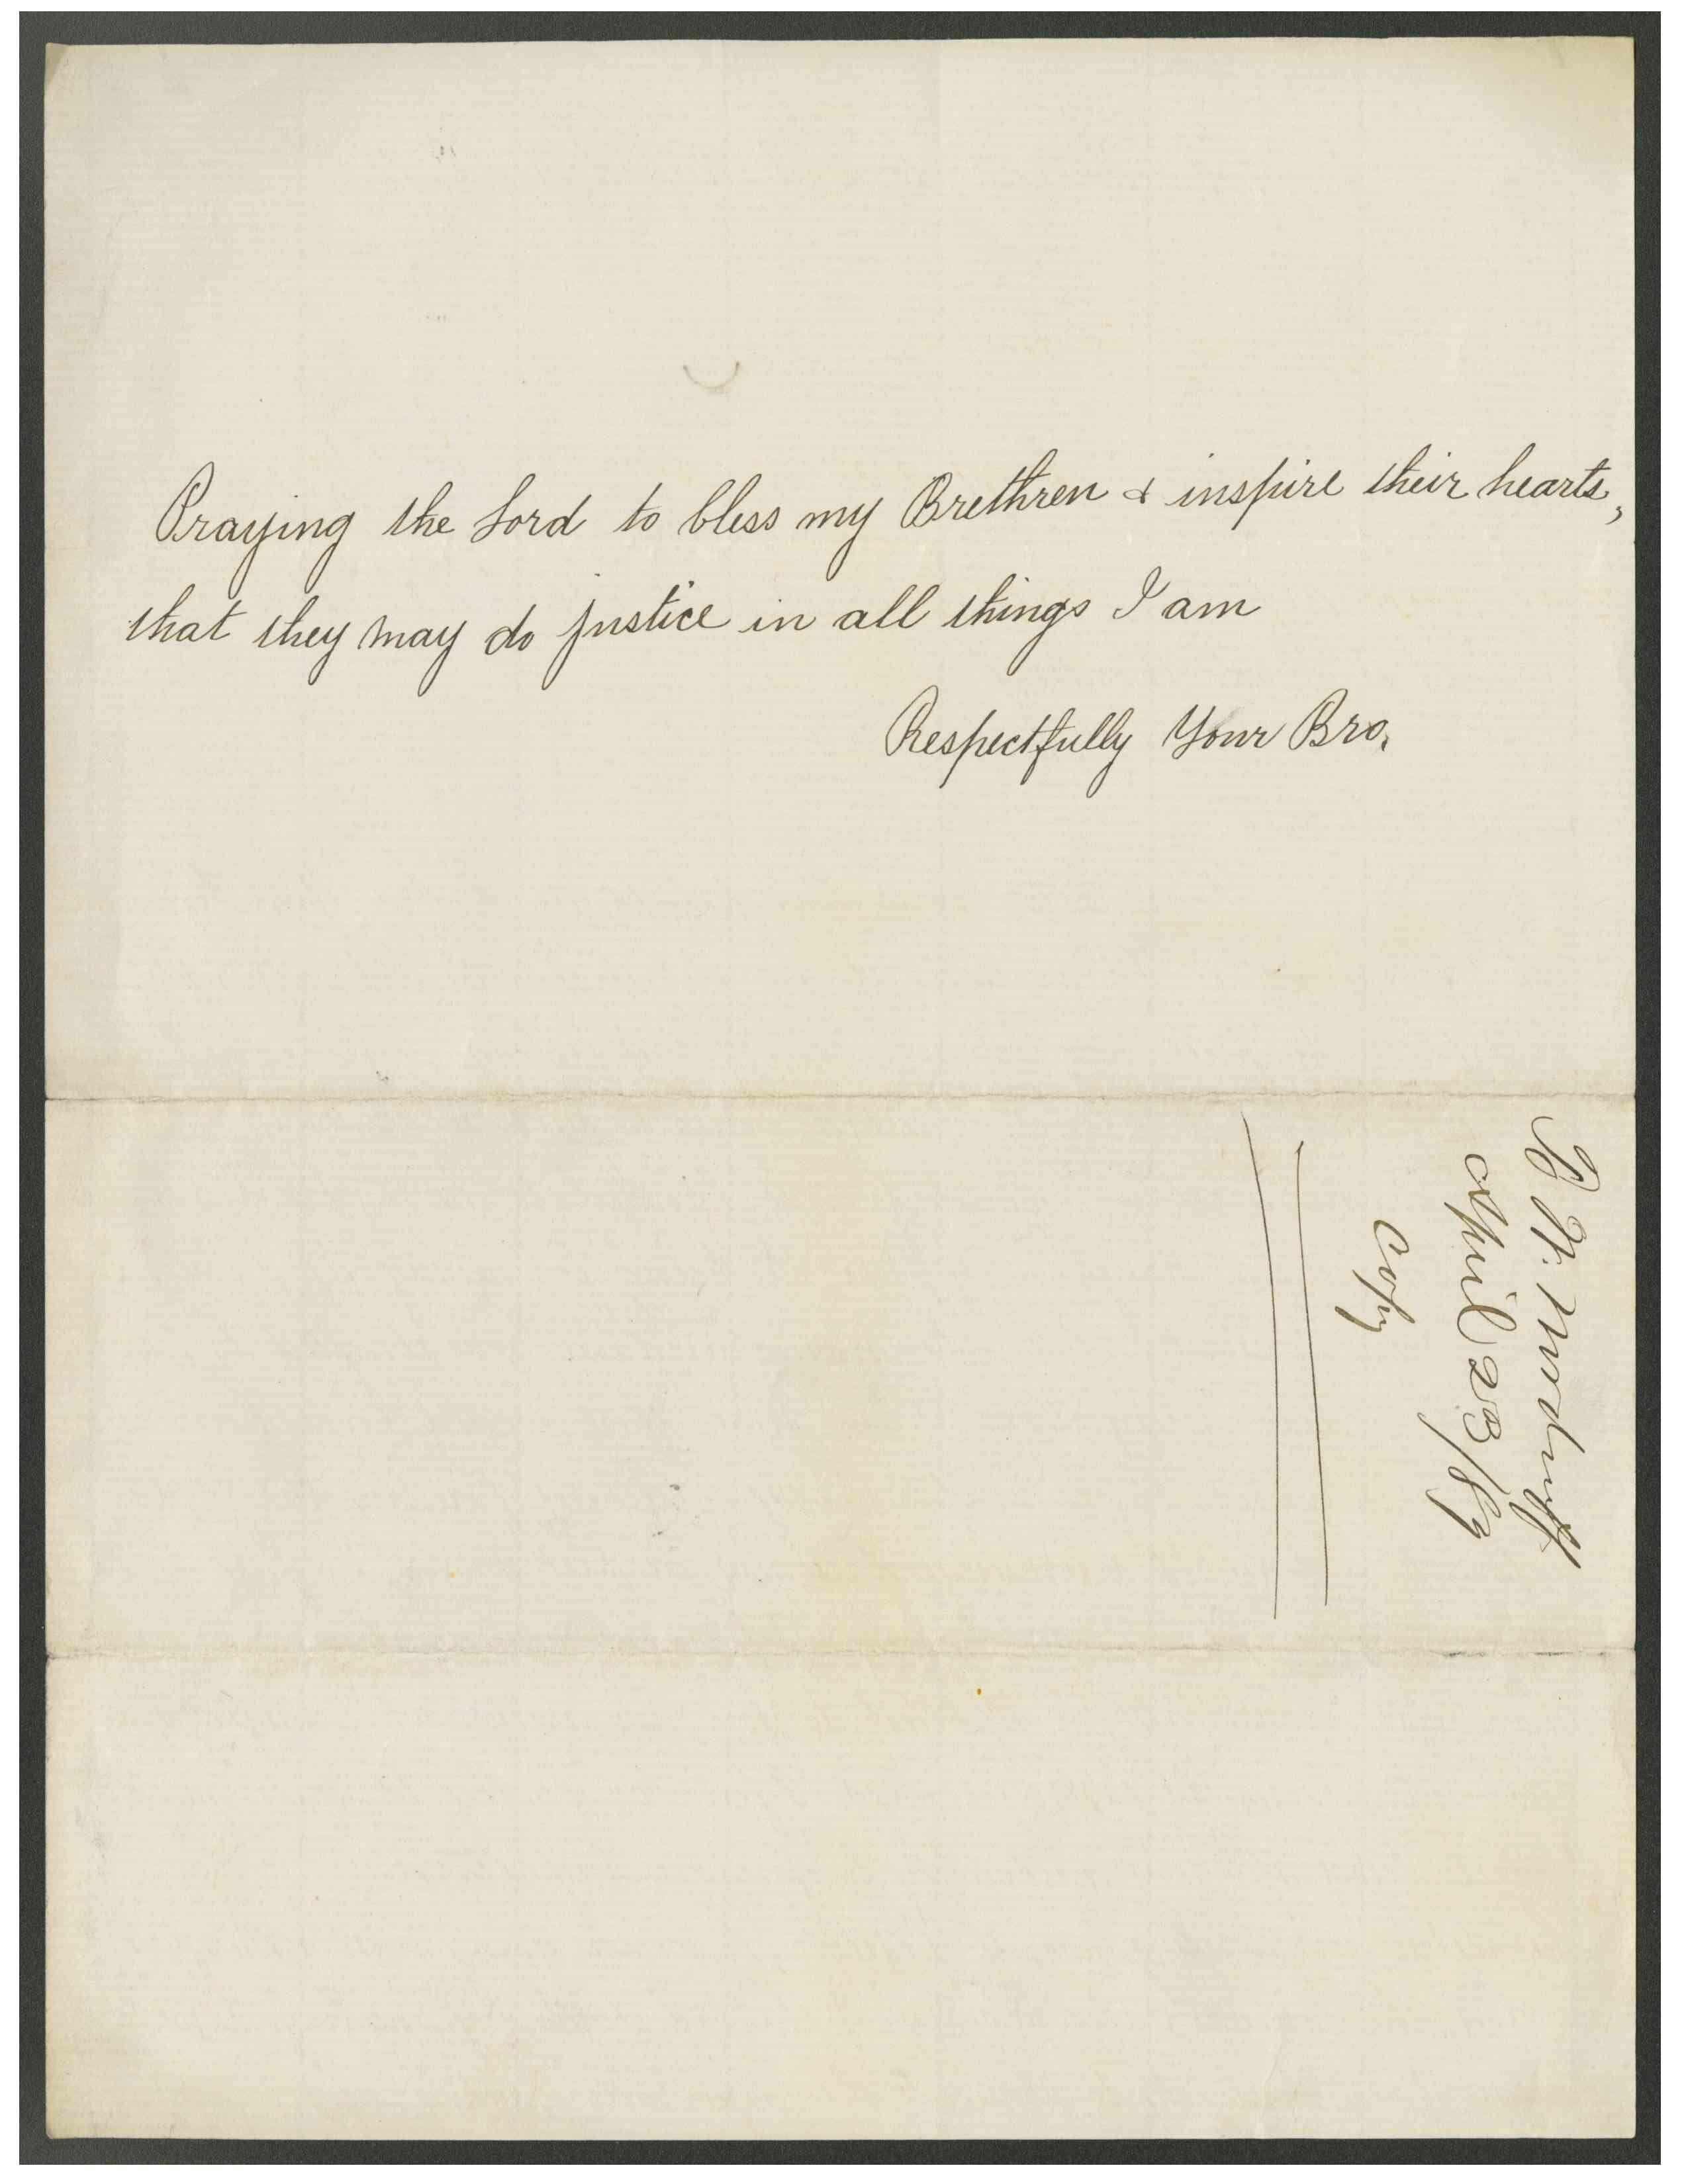 Praying the Lord to bless my Brethren & inspire their hearts,
that they may do justice in all things I am
Respectfully Your Bro.
To W. Woodruff
April 23/87
Copy